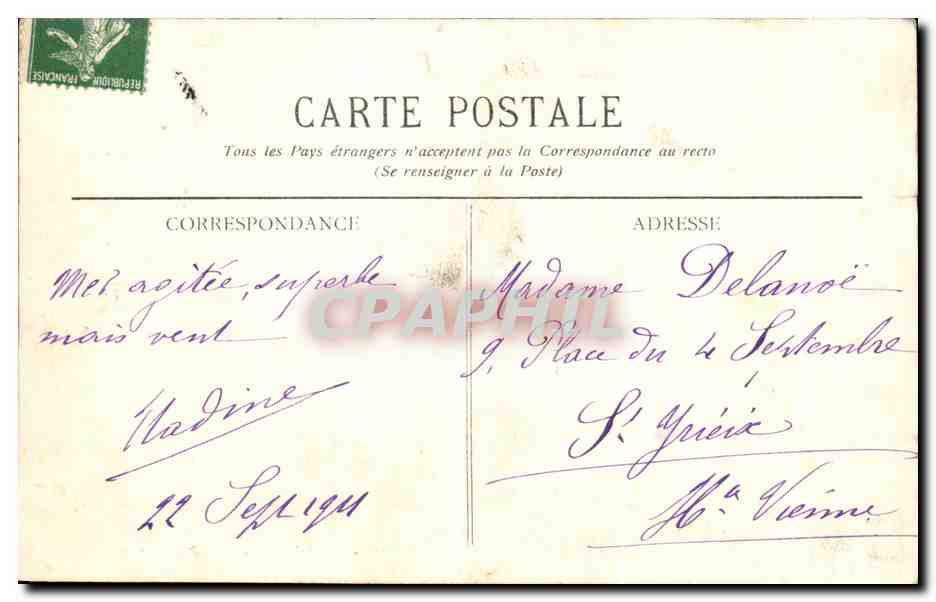 REPUBLIQUE
FRANÇAISE
CARTE POSTALE
Tous les Pays étrangers n'acceptent pas la Correspondance au recto
(Se renseigner à la Poste)
CORRESPONDANCE
Mer agitée, superbe
mais vent
Nadine
22 Sept 1911
ADRESSE
Madame Delanoë
9, Place du 4 Septembre
St Yrieix
Hte Vienne
CPAPHIL